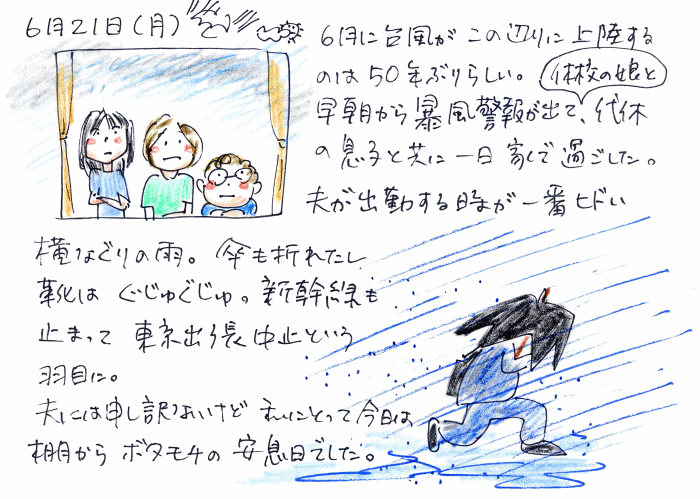 6月21日(月)
6月に台風がこの辺りに上陸する
のは50年ぶりらしい。
休校の娘と
早朝から暴風警報が出て、代休
の息子と共に一日家で過ごした。
夫が出勤する時が一番ヒドい
横なぐりの雨。傘も折れたし
靴はぐじゅぐじゅ。新幹線も
止まって東京出張中止という
羽目に。
夫には申し訳ないけど私にとって今日は、
棚からボタモチの安息日でした。